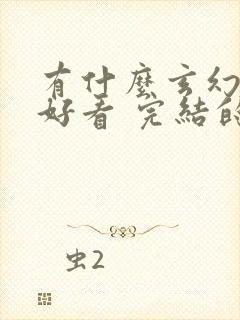 有什麼玄幻
好看 完結的
虫2